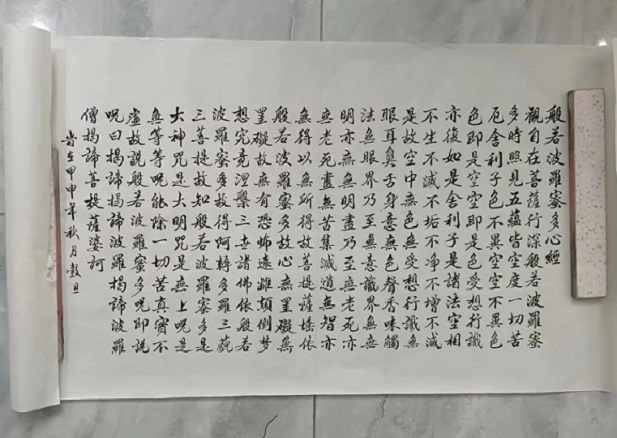 般若波羅蜜多心經
觀自在菩薩行深般若波羅蜜
多時照見五蘊皆空度一切苦
厄舍利子色不異空空不異色
色即是空空即是色受想行識
亦復如是舍利子是諸法空相
不生不滅不垢不淨不增不減
是故空中無色無受想行識無
眼耳鼻舌身意無色聲香味觸
法無眼界乃至無意識界無無
明亦無無明盡乃至無老死亦
無老死盡無苦集滅道無智亦
無得以無所得故菩提薩埵依
般若波羅蜜多故心無罣礙無
罣礙故無有恐怖遠離顛倒夢
想究竟涅槃三世諸佛依般若
波羅蜜多故得阿耨多羅三藐
三菩提故知般若波羅蜜多是
大神咒是大明咒是無上咒是
無等等咒能除一切苦真實不
虛故說般若波羅蜜多咒即說
咒曰揭諦揭諦波羅揭諦波羅
僧揭諦菩提薩婆訶
在甲申年秋月旦